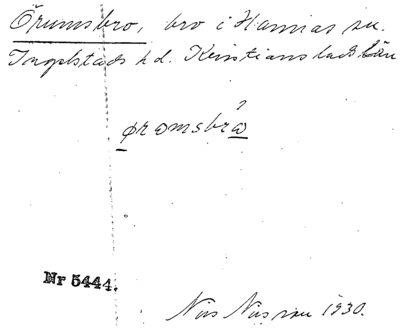 Örumsbro, bro i Hannas sn.
Ingelstads hd. Kristianstads län
ørømsbrω
Nr 5444.
Nils Nilsson 1930.